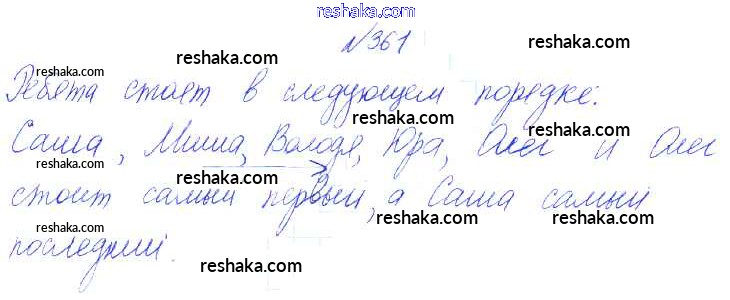 reshaka.com
№361
reshaka.com reshaka.com
reshaka.com
Ребята стоят в следующем порядке:
reshaka.com reshaka.com
Саша, Миша, Володя, Юра, Олег и Олег
reshaka.com reshaka.com
стоит самый первый, а Саша самый
reshaka.com reshaka.com
последний.
reshaka.com reshaka.com